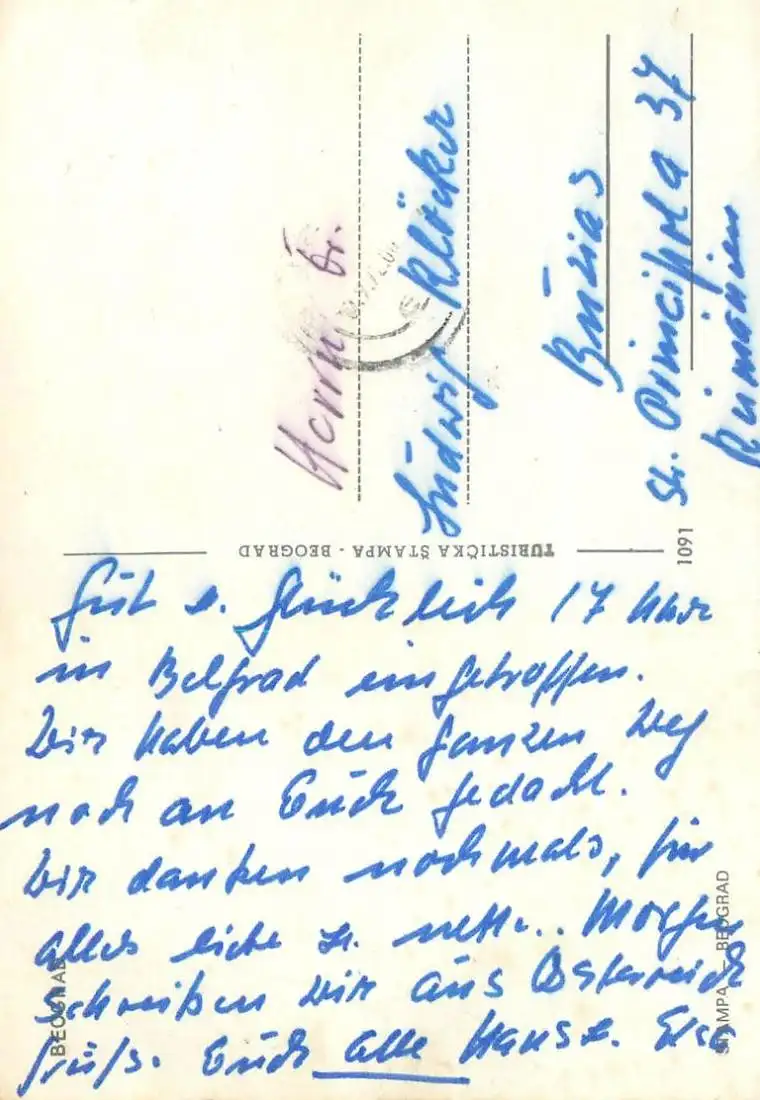 Herrn Dr.
Ludwig Klöcker
Buzias
St. Principala 37
Rumänien
TURISTIČKA ŠTAMPA - BEOGRAD
1091
Gut u. glücklich 17 Uhr
in Belgrad eingetroffen.
Wir haben den ganzen Weg
noch an Euch gedacht.
Wir danken nochmals, für
alles liebe u. nette. Morgen
schreiben wir aus Österreich
Grüß. Euch alle Hans u. Elsa
BEOGRAD
ŠTAMPA – BEOGRAD